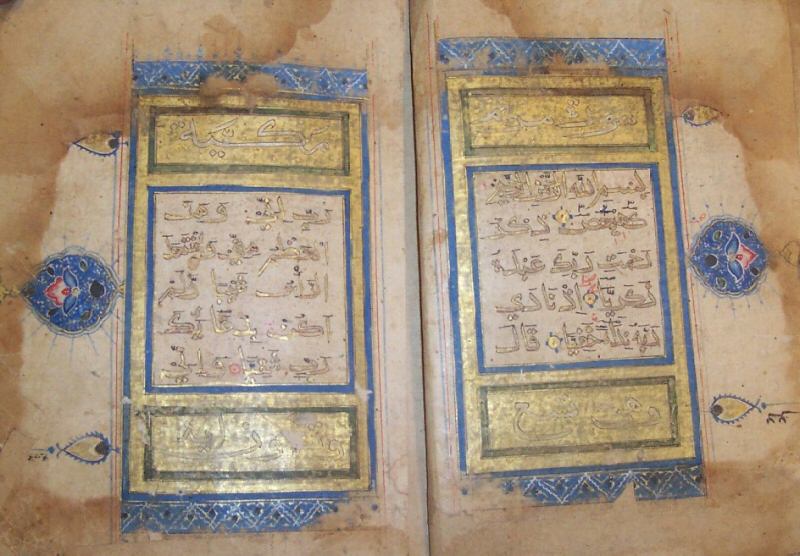 سورة مريم
بسم الله الرحمن الرحيم
كهيعص ذكر
رحمت ربك عبده
زكريا اذ نادى
ربه نداء خفيا قال
وهي تسع
مكية
رب اني وهن
العظم مني واشتعل
الراس شيبا ولم
اكن بدعائك
رب شقيا واني
وتسعون اية